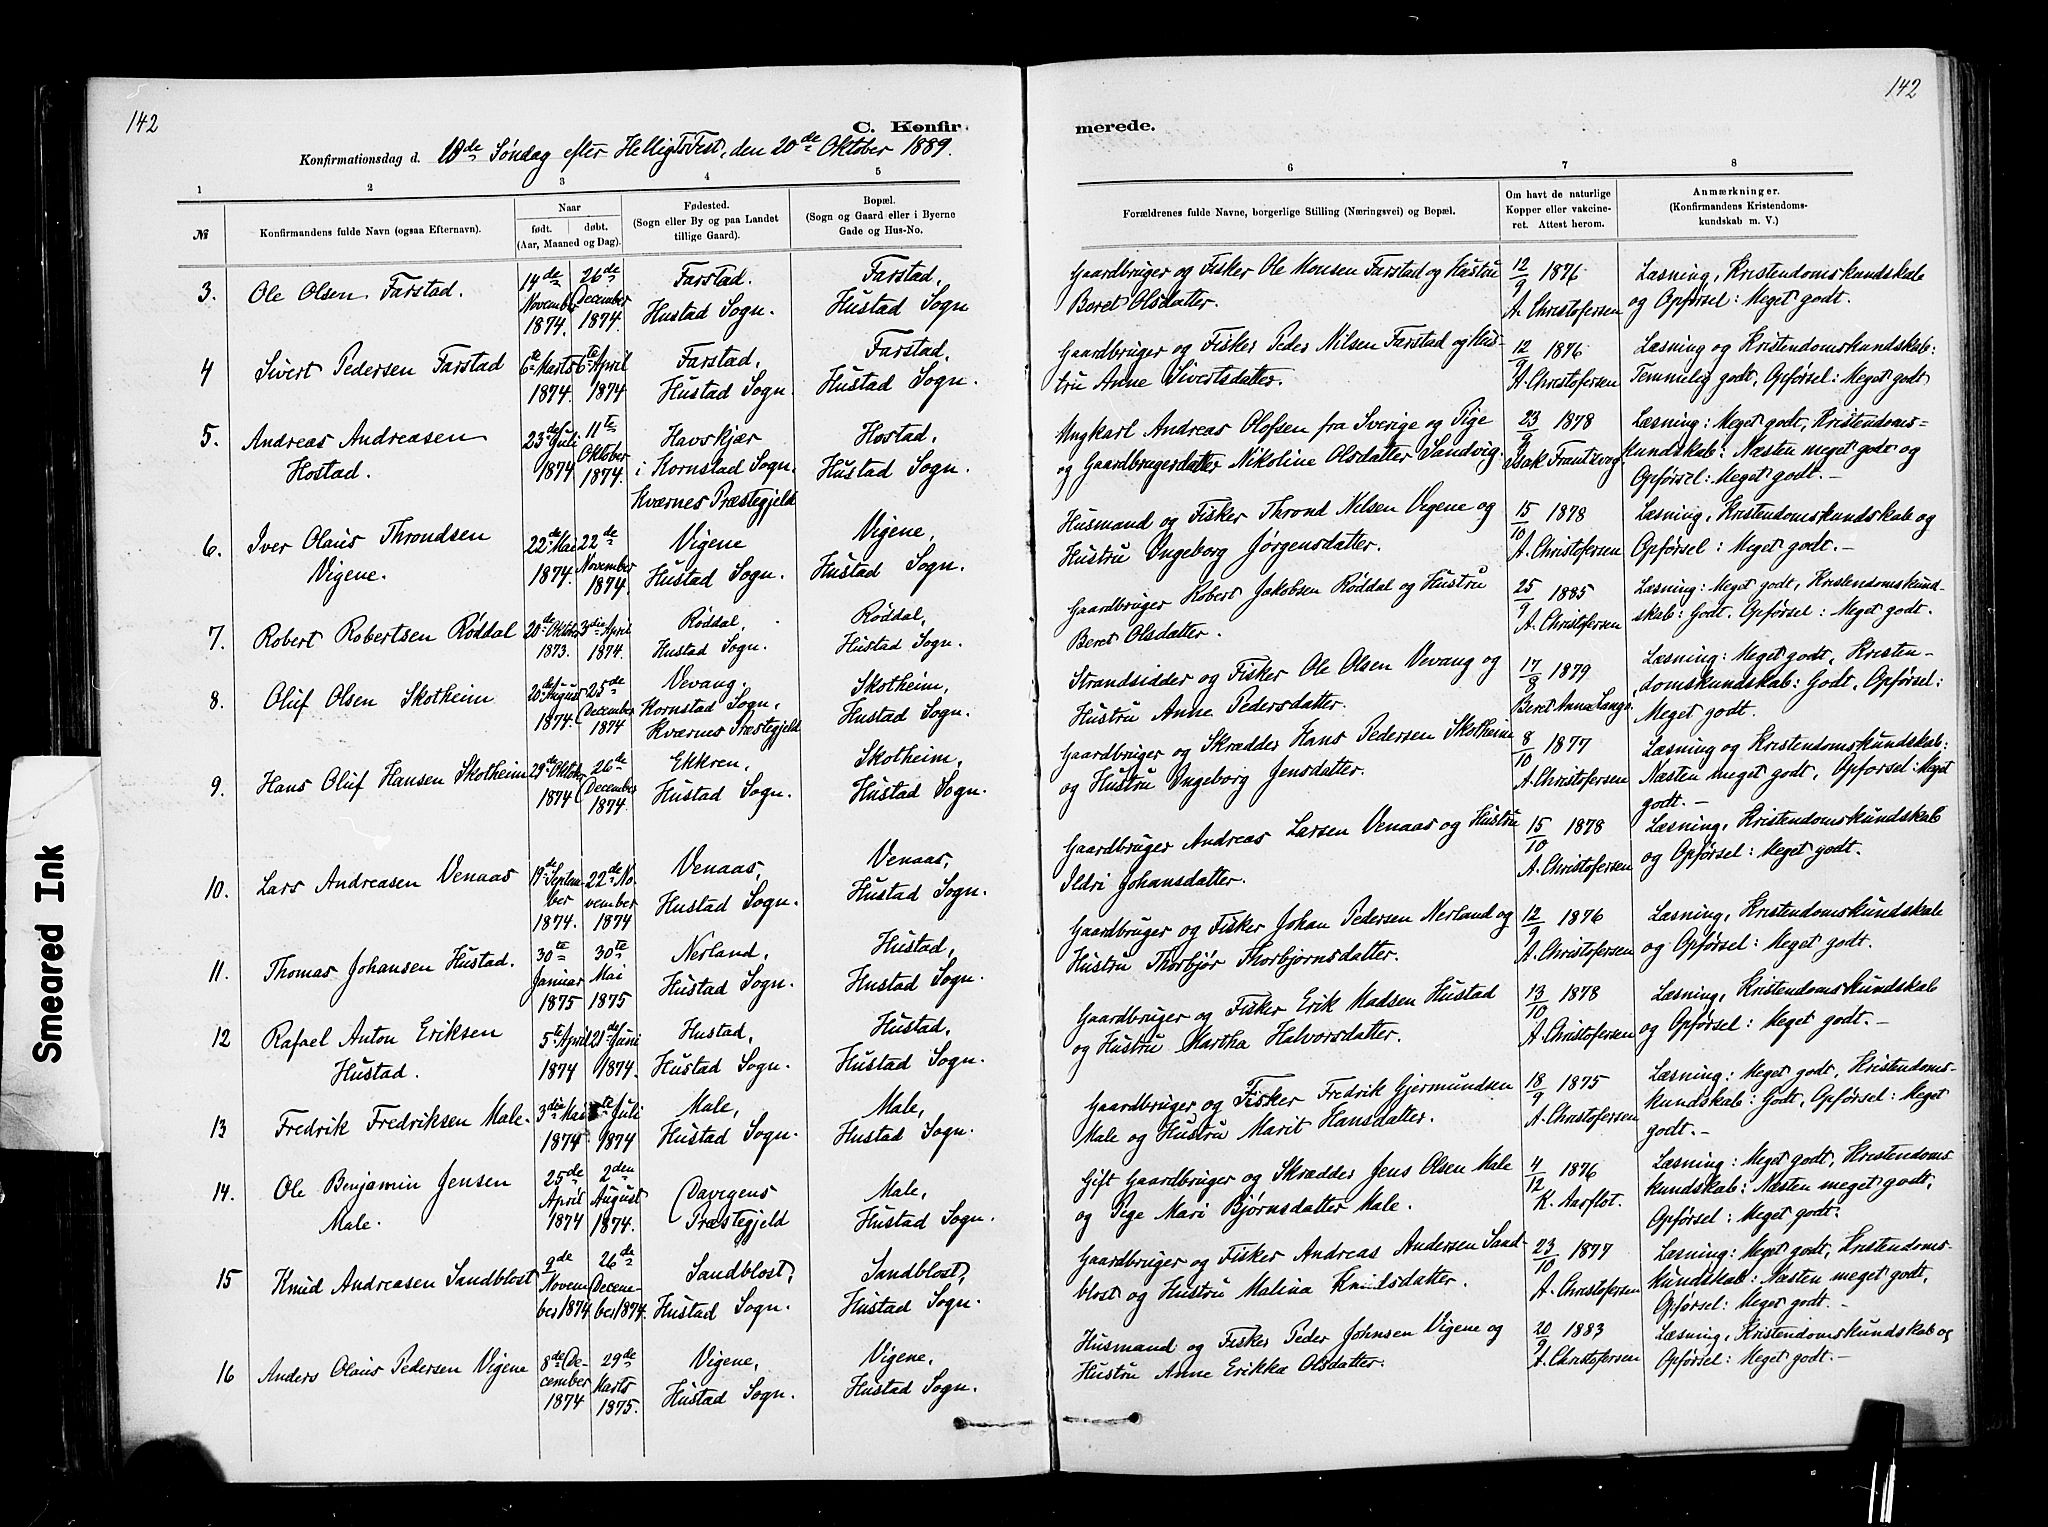 142
142
C. Konfir-
merede.
Konfirmationsdag d. 18de Søndag efter HelligtsFest, den 20de Oktober 1889.
1
2
3
4
5
6
7
8
№
Konfirmandens fulde Navn (ogsaa Efternavn).
Naar
født.
døbt.
(Aar, Maaned og Dag).
Fødested.
(Sogn eller By og paa Landet
tillige Gaard).
Bopæl.
(Sogn og Gaard eller i Byerne
Gade og Hus-No.
Forældrenes fulde Navne, borgerlige Stilling (Næringsvei) og Bopæl.
Om havt de naturlige
Kopper eller vakcine-
ret. Attest herom.
Anmærkninger.
(Konfirmandens Kristendoms-
kundskab m. V.)
3.
Ole Olsen Farstad.
14de
November
1874.
26de
December
1874.
Farstad.
Hustad Sogn.
Farstad,
Hustad Sogn
Gaardbruger og Fisker Ole Monsen Farstad og Hustru
Beret Olsdatter.
12/9 1876
A. Christofersen
Læsning, Kristendomskundskab
og Opførsel: Meget godt.
4
Sivert Pedersen Farstad
6te Marts
1874.
6te April
1874
Farstad,
Hustad Sogn.
Farstad,
Hustad Sogn.
Gaardbruger og Fisker Peder Nilsen Farstad og Hus-
tru Anne Sivertsdatter.
12/9 1876
A. Christofersen
Læsning og Kristendomskundskab:
Temmelig godt, Opførsel: Meget godt
5.
Andreas Andreasen
Hostad.
23de Juli
1874
11te
Oktober
1874.
Havskjær
i Kornstad Sogn,
Kværnes Præstegjeld
Hostad,
Hustad Sogn.
Ungkarl Andreas Olofsen fra Sverige og Pige
og Gaardbrugerdatter Nikoline Olsdatter Sandvig.
23/9 1878
Isak Frantzvog
Læsning: Meget godt, Kristendoms-
kundskab: Næsten meget godt og
Opførsel: Meget godt. –
6.
Iver Olaus Throndsen
Vigene.
22de Mai
1874.
22de
November
1874.
Vigene
Hustad Sogn.
Vigene,
Hustad Sogn.
Husmand og Fisker Thrond Nilsen Vegene og
Hustru Ingeborg Jørgensdatter.
15/10 1878
A. Christofersen
Læsning, Kristendomskundskab og
Opførsel: Meget godt. –
7.
Robert Robertsen Røddal
20de Oktober
1873.
3die April
1874.
Rødsal,
Hustad Sogn.
Røddal,
Hustad Sogn.
Gaardbruger Robert Jakobsen Røddal og Hustru
Beret Olsdatter.
25/9 1885
A. Christofersen
Læsning: Meget godt, Kristendomskund-
skab: Godt. Opførsel: Meget godt.
8.
Oluf Olsen Skotheim
20de August
1874.
25de
December
1874
Vevang.
Kornstad Sogn,
Kværnes Præstegjeld
Skotheim,
Hustad Sogn.
Strandsidder og Fisker Ole Olsen Vevang og
Hustru Anne Pedersdatter.
17/8 1879
Beret Anna Lange.
Læsning: Meget godt, Kristen-
domskundskab: Godt, Opførsel:
Meget godt.
9.
Hans Oluf Hansen Skotheim
29de Oktober
1874
26de
December
1874.
Ekkren,
Hustad Sogn.
Skotheim,
Hustad Sogn.
Gaardbruger og Skrædder Hans Pedersen Skotheim
og Hustru Ingeborg Jensdatter.
8/10 1877
A. Christofersen
Læsning og Kristendomskundskab:
Næsten meget godt, Opførsel: Meget
godt. –
10.
Lars Andreasen Venaas
19de Septem-
ber
1874.
22de No-
vember
1874
Venaas,
Hustad Sogn.
Venaas,
Hustad Sogn.
Gaardbruger Andreas Larsen Venaas og Hustru
Ildri Johansdatter.
15/10 1878
A. Christofersen
Læsning, Kristendomskundskab
og Opførsel: Meget godt.
11.
Thomas Johansen Hustad.
30te
Januar
1875
30te
Mai
1875
Nerland,
Hustad Sogn.
Hustad,
Hustad Sogn.
Gaardbruger og Fisker Johan Pedersen Nerland og
Hustru Thorbjør Thorbjørnsdatter.
12/9 1876
A. Christofersen
Læsning, Kristendomskundskab
og Opførsel: Meget godt.
12
Rafael Anton Eriksen
Hustad.
5te April
1874
21de Juni
1874.
Hustad,
Hustad Sogn.
Hustad,
Hustad Sogn.
Gaardbruger og Fisker Erik Madsen Hustad
og Hustru Martha Halvorsdatter.
13/10 1878
A. Christofersen
Læsning, Kristendomskundskab
og Opførsel: Meget godt. –
13
Fredrik Fredriksen Male.
3die Mai
1874
te Juli
1874
Male,
Hustad Sogn.
Male,
Hustad Sogn.
Gaardbruger og Fisker Fredrik Gjermundsen
Male og Hustru Marit Hansdatter.
18/9 1875
A. Christofersen
Læsning: Meget godt, Kristendoms-
kundskab: Godt, Opførsel: Meget
godt. –
14.
Ole Benjamin Jensen
Male.
25de
April
1874
2den
August
1874.
Davigens
Præstegjeld
Male,
Hustad Sogn.
Gift Gaardbruger og Skrædder Jens Olsen Male
og Pige Mari Bjørnsdatter Male.
4/12 1876
K. Aarflot.
Læsning: Meget godt, Kristendoms-
kundskab: Næsten meget godt,
Opførsel: Meget godt.
15
Knud Andreasen Sandblost
9de
Novem-
ber 1874
26de
Decem-
ber 1874.
Sandblost,
Hustad Sogn.
Sandblost,
Hustad Sogn.
Gaardbruger og Fisker Andreas Andersen Sand-
blost og Hustru Malina Knudsdatter.
23/10 1877
A. Christofersen
Læsning: Meget godt, Kristendoms-
kundskab: Næsten meget godt,
Opførsel: Meget godt. –
16
Anders Olaus Pedersen Vigene
8de De-
cember
1874
29de
Marts
1875.
Vigene,
Hustad Sogn.
Vigene,
Hustad Sogn.
Husmand og Fisker Peder Johnsen Vigene og
Hustru Anne Erikka Olsdatter.
20/9 1883
A. Christofersen
Læsning, Kristendomskundskab og
Opførsel: Meget godt. –
Smeared Ink